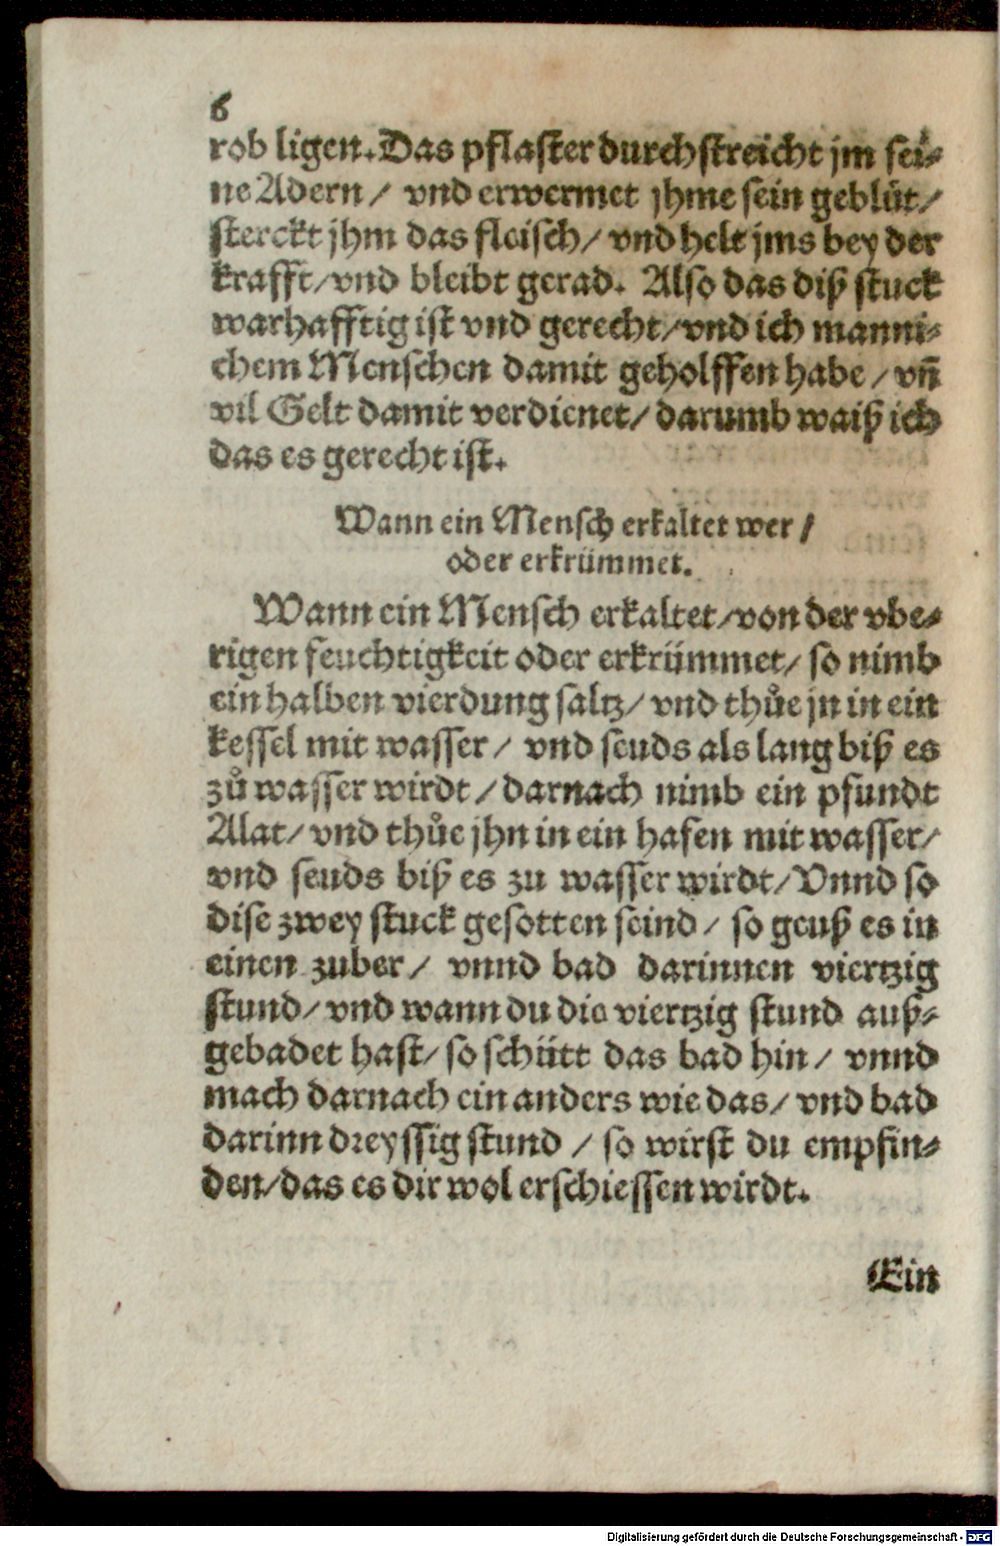 6
rob ligen. Das pflaster durchstreicht jm sei-
ne Adern / vnd erwermet jhme sein geblüt /
sterckt jhm das fleisch / vnd helt jms bey der
krafft / vnd bleibt gerad. Also das diß stuck
warhafftig ist vnd gerecht / vnd ich manni-
chem Menschen damit geholffen habe / vñ
vil Gelt damit verdienet / darumb waiß ich
das es gerecht ist.
Wann ein Mensch erkaltet wer /
oder erkrümmet.
Wann ein Mensch erkaltet / von der vbe-
rigen feuchtigkeit oder erkrümmet / so nimb
ein halben vierdung saltz / vnd thůe jn in ein
kessel mit wasser / vnd seuds als lang biß es
zů wasser wirdt / darnach nimb ein pfundt
Alat / vnd thůe jhn in ein hafen mit wasser /
vnd seuds biß es zu wasser wirdt / Vnnd so
dise zwey stuck gesotten seind / so geuß es in
einen zuber / vnnd bad darinnen viertzig
stund / vnd wann du die viertzig stund auß-
gebadet hast / so schütt das bad hin / vnnd
mach darnach ein anders wie das / vnd bad
darinn dreyssig stund / so wirst du empfin-
den / das es dir wol erschiessen wirdt.
Ein
Digitalisierung gefördert durch die Deutsche Forschungsgemeinschaft - DFG